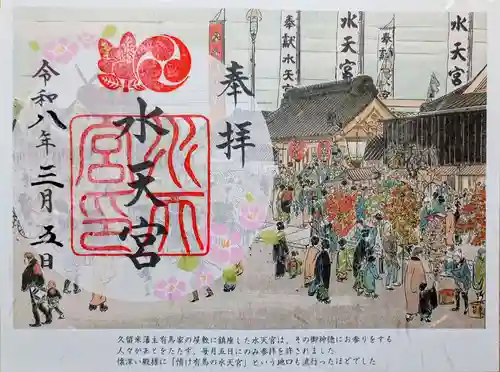 水天宮
水天宮
水天宮
水天宮
奉拝
水天宮
水天
宮印
令和八年三月五日
久留米藩主有馬家の屋敷に鎮座した水天宮は、その御神徳にお参りをする
人々があとをたたず、毎月五日にのみ参拝を許されました
懐深い殿様に「情け有馬の水天宮」という地口も流行ったほどでした